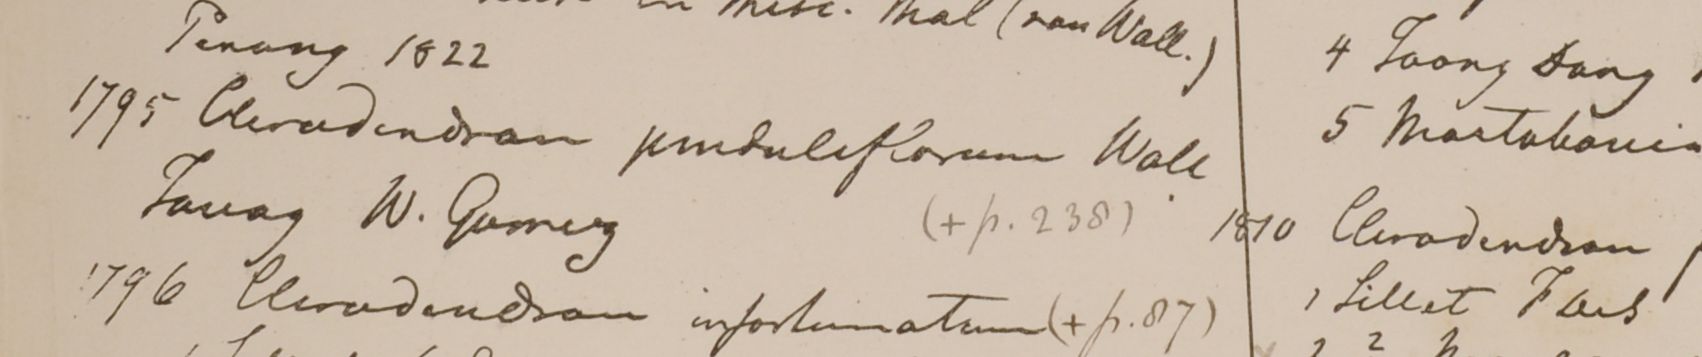 in Misc. Mal (van Wall.)
Penang 1822
1795 Clerodendron penduliflorum Wall
Tavoy W. Gomez
(+ p. 238)
1796 Clerodendron infortunatum (+ p. 87)
4 Taong Dong
5 Martabania
1810 Clerodendron
1 Sillet F
2